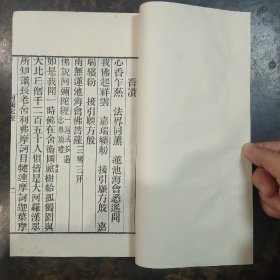 香讚
心香乍爇 法界同薰 蓮池海會悉遙聞
我佛起祥雲 嘉瑞繽紛 接引願方殷 嘉
瑞繽紛 接引願方殷
南無蓮池海會佛菩薩 三稱三拜
佛說阿彌陀經
如是我聞一時佛在舍衛國祇樹給孤獨園與
大比丘僧千二百五十人俱皆是大阿羅漢眾
所知識長老舍利弗摩訶目犍連摩訶迦葉摩